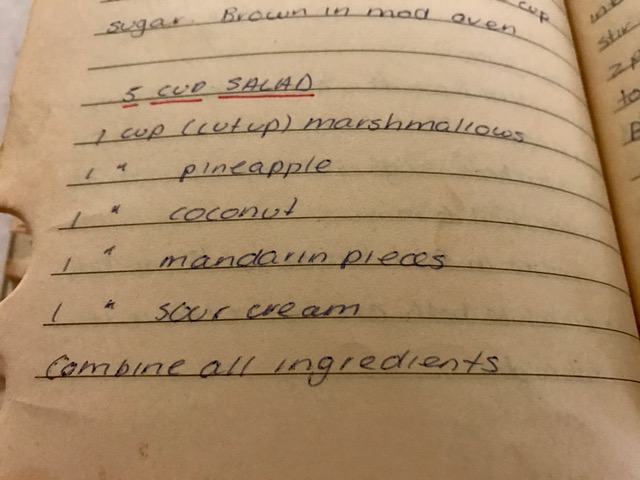 cup
sugar. Brown in mod oven
5 CUP SALAD
1 cup (cut up) marshmallows
1 " pineapple
1 " coconut
1 " mandarin pieces
1 " sour cream
Combine all ingredients
stir
to
B